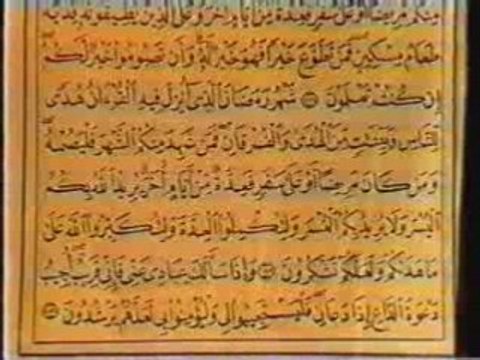 مِنكُم مَّرِيضًا أَوْ عَلَىٰ سَفَرٍ فَعِدَّةٌ مِّنْ أَيَّامٍ أُخَرَ وَعَلَى الَّذِينَ يُطِيقُونَهُ فِدْيَةٌ
طَعَامُ مِسْكِينٍ فَمَن تَطَوَّعَ خَيْرًا فَهُوَ خَيْرٌ لَّهُ وَأَن تَصُومُوا خَيْرٌ لَّكُمْ
إِن كُنتُمْ تَعْلَمُونَ شَهْرُ رَمَضَانَ الَّذِي أُنزِلَ فِيهِ الْقُرْءَانُ هُدًى
لِّلنَّاسِ وَبَيِّنَٰتٍ مِّنَ الْهُدَىٰ وَالْفُرْقَانِ فَمَن شَهِدَ مِنكُمُ الشَّهْرَ فَلْيَصُمْهُ
وَمَن كَانَ مَرِيضًا أَوْ عَلَىٰ سَفَرٍ فَعِدَّةٌ مِّنْ أَيَّامٍ أُخَرَ يُرِيدُ اللَّهُ بِكُمُ
الْيُسْرَ وَلَا يُرِيدُ بِكُمُ الْعُسْرَ وَلِتُكْمِلُوا الْعِدَّةَ وَلِتُكَبِّرُوا اللَّهَ عَلَىٰ
مَا هَدَىٰكُمْ وَلَعَلَّكُمْ تَشْكُرُونَ وَإِذَا سَأَلَكَ عِبَادِي عَنِّي فَإِنِّي قَرِيبٌ أُجِيبُ
دَعْوَةَ الدَّاعِ إِذَا دَعَانِ فَلْيَسْتَجِيبُوا لِي وَلْيُؤْمِنُوا بِي لَعَلَّهُمْ يَرْشُدُونَ